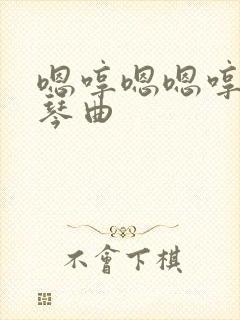 嗯啍嗯嗯啍
琴曲
不會下棋